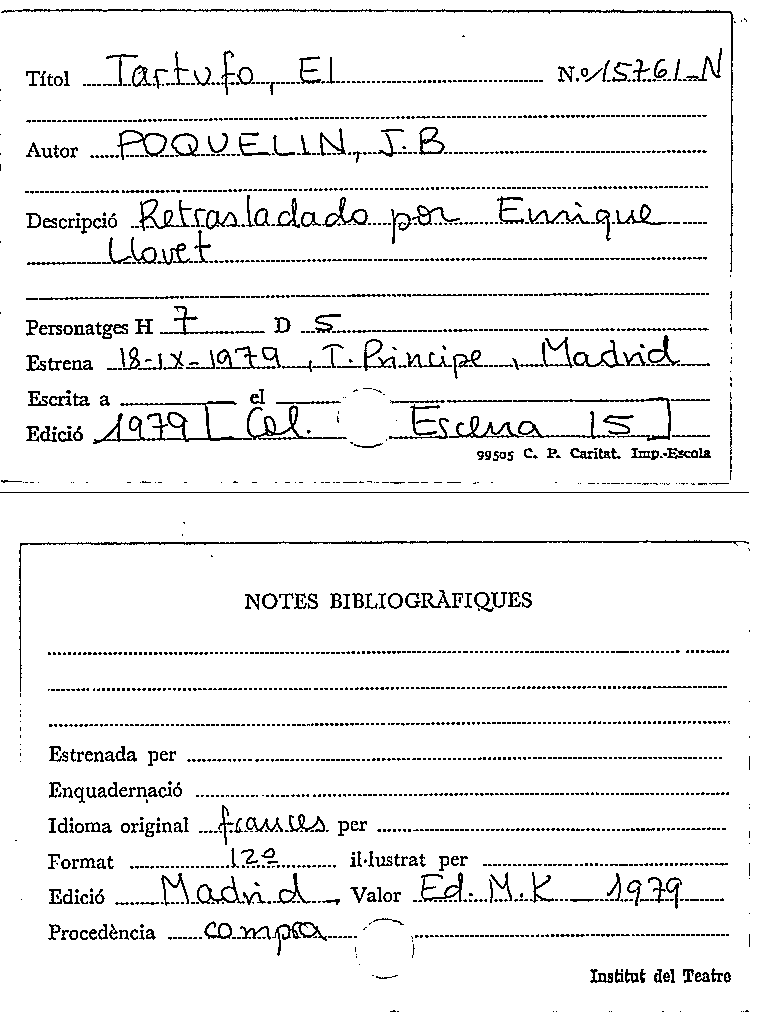 Títol Tartufo, El N.º 15761-N
Autor POQUELIN, J.B
Descripció Retrasladado por Enrique
Llovet
Personatges H 7 D 5
Estrena 18-IX-1979, T. Principe, Madrid
Escrita a el
Edició 1979 [ Col. Escena 15 ]
99505 C. P. Caritat. Imp.-Escola
NOTES BIBLIOGRÀFIQUES
Estrenada per
Enquadernació
Idioma original frances per
Format 12º il·lustrat per
Edició Madrid, Valor Ed. M.K 1979
Procedència compra
Institut del Teatre